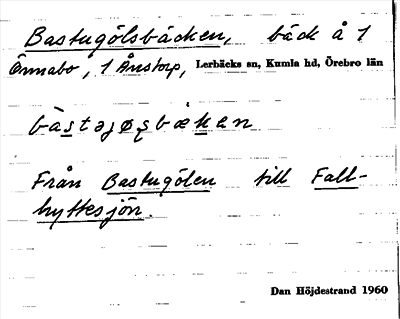 Bastugölsbäcken, bäck å 1
Önnabo, 1 Ånstorp, Lerbäcks sn, Kumla hd, Örebro län
Från Bastugölen till Fall-
hyttesjön.
Dan Höjdestrand 1960